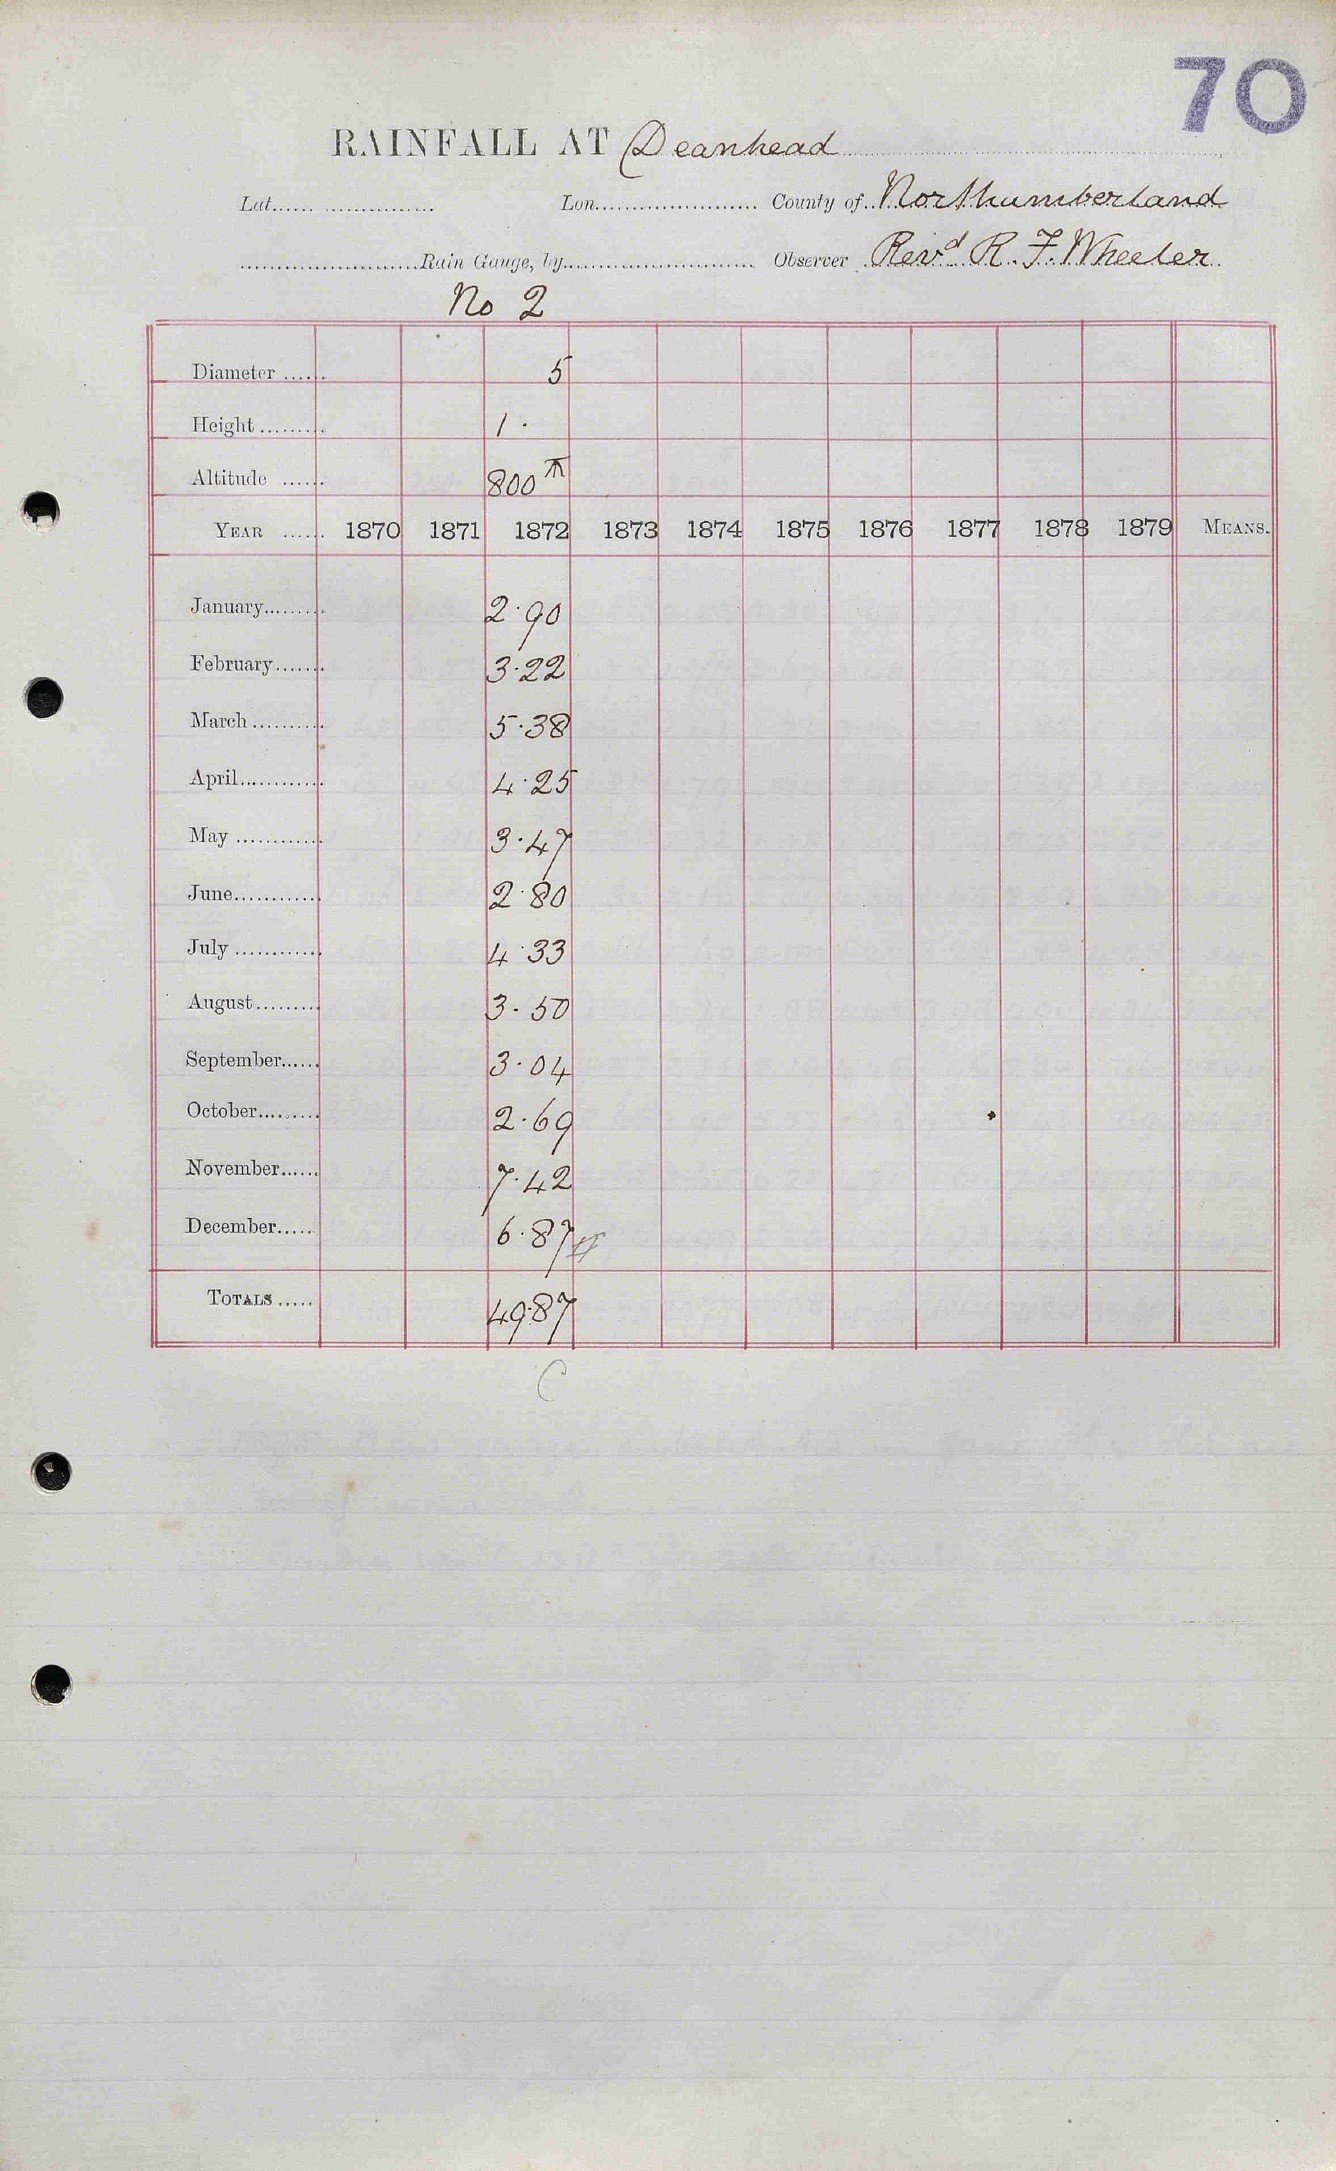 70
RAINFALL AT Deanhead
Lat. Lon. County of Northumberland
Rain Gauge, by Observer Revd R. F. Wheeler
No 2
Diameter 5
Height 1 ·
Altitude 800
YEAR 1870 1871 1872 1873 1874 1875 1876 1877 1878 1879 MEANS.
January 2·90
February 3·22
March 5·38
April 4·25
May 3·47
June 2·80
July 4·33
August 3·50
September 3·04
October 2·69
November 7·42
December 6·87
TOTALS 49·87
C